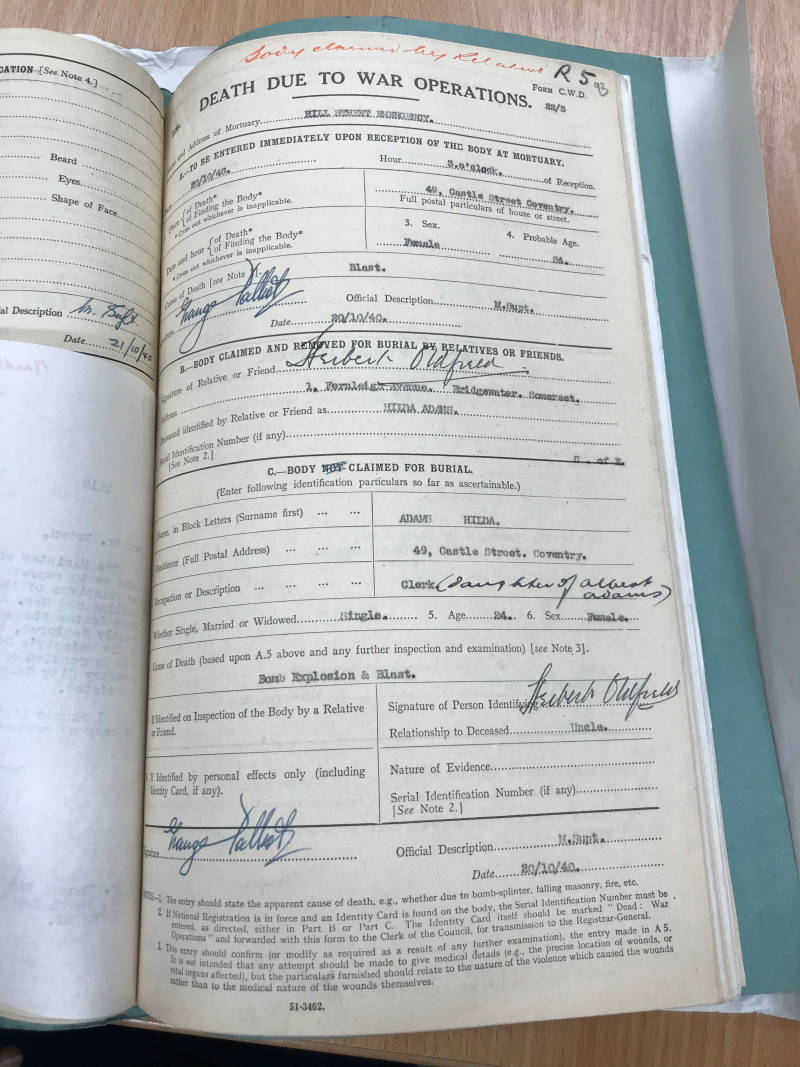 CATION [See Note 4.]
Beard
Eyes
Shape of Face
al Description
Date 21/10/40
1119
Brown,
Body claimed by Relative
R 5 93
FORM C.W.D.
DEATH DUE TO WAR OPERATIONS.
22/3
and Address of Mortuary HILL STREET EMERGENCY.
A.—TO BE ENTERED IMMEDIATELY UPON RECEPTION OF THE BODY AT MORTUARY.
20/10/40. Hour 5.o'clock. of Reception.
Place { of Death* of Finding the Body* 49, Castle Street Coventry.
* Cross out whichever is inapplicable. Full postal particulars of house or street.
Date and hour { of Death* of Finding the Body* 3. Sex. 4. Probable Age.
* Cross out whichever is inapplicable. Female 24.
Cause of Death [see Note 1]. Blast.
Official Description M.Supt.
Date 20/10/40.
B.—BODY CLAIMED AND REMOVED FOR BURIAL BY RELATIVES OR FRIENDS.
Signature of Relative or Friend Herbert Oldfield
Address 1, Fernleigh Avenue. Bridgewater. Somerset.
Deceased identified by Relative or Friend as HILDA ADAMS.
Serial Identification Number (if any)
[See Note 2.]
C. of E.
C.—BODY NOT CLAIMED FOR BURIAL.
(Enter following identification particulars so far as ascertainable.)
Name, in Block Letters (Surname first) ... ... ADAMS HILDA.
Residence (Full Postal Address) ... ... 49, Castle Street. Coventry.
Occupation or Description ... ... ... Clerk (daughter of Albert Adams)
Whether Single, Married or Widowed Single. 5. Age 24. 6. Sex Female.
Cause of Death (based upon A.5 above and any further inspection and examination) [see Note 3].
Bomb Explosion & Blast.
If Identified on Inspection of the Body by a Relative or Friend.
Signature of Person Identifying Herbert Oldfield
Relationship to Deceased Uncle.
If Identified by personal effects only (including Identity Card, if any).
Nature of Evidence
Serial Identification Number (if any)
[See Note 2.]
Signature
Official Description M.Supt.
Date 20/10/40.
NOTES—1. The entry should state the apparent cause of death, e.g., whether due to bomb-splinter, falling masonry, fire, etc.
2. If National Registration is in force and an Identity Card is found on the body, the Serial Identification Number must be
entered, as directed, either in Part B or Part C. The Identity Card itself should be marked "Dead: War
Operations" and forwarded with this form to the Clerk of the Council, for transmission to the Registrar-General.
3. This entry should confirm (or modify as required as a result of any further examination), the entry made in A 5.
It is not intended that any attempt should be made to give medical details (e.g., the precise location of wounds, or
vital organs affected), but the particulars furnished should relate to the nature of the violence which caused the wounds
rather than to the medical nature of the wounds themselves.
51-3462.